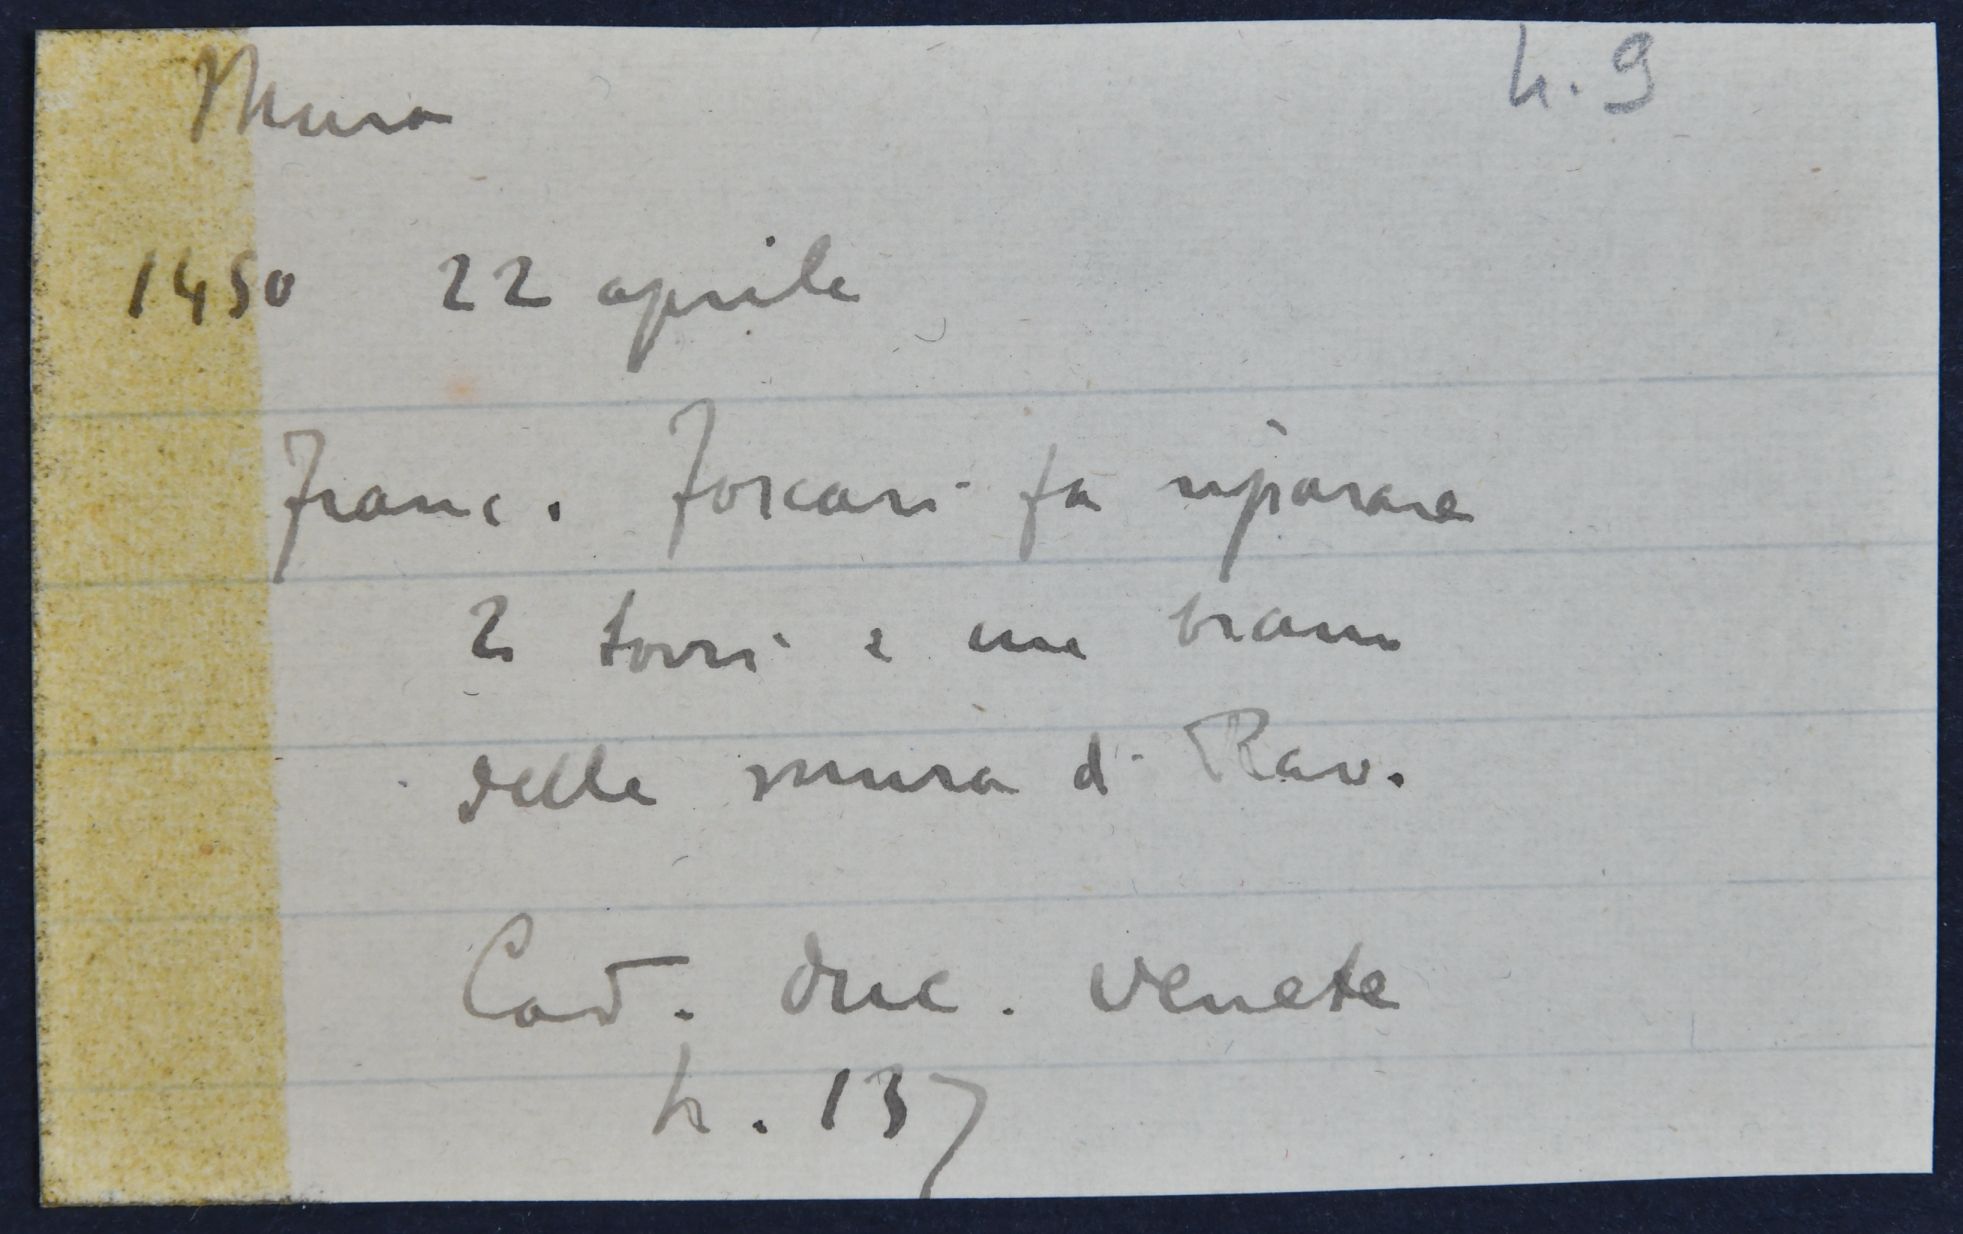 Mura n. 9
1450 22 aprile
Franc. Foscari fa riparare
2 torri e un tramo
delle mura di Rav.
Cod. duc. venete
n. 137